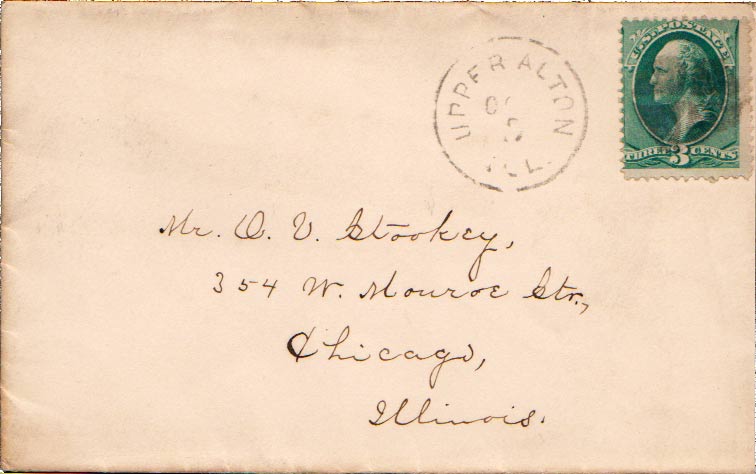 UPPER ALTON
ILL.
U.S. POSTAGE
THREE 3 CENTS
Mr. O. V. Stookey,
354 W. Monroe Str.,
Chicago,
Illinois.